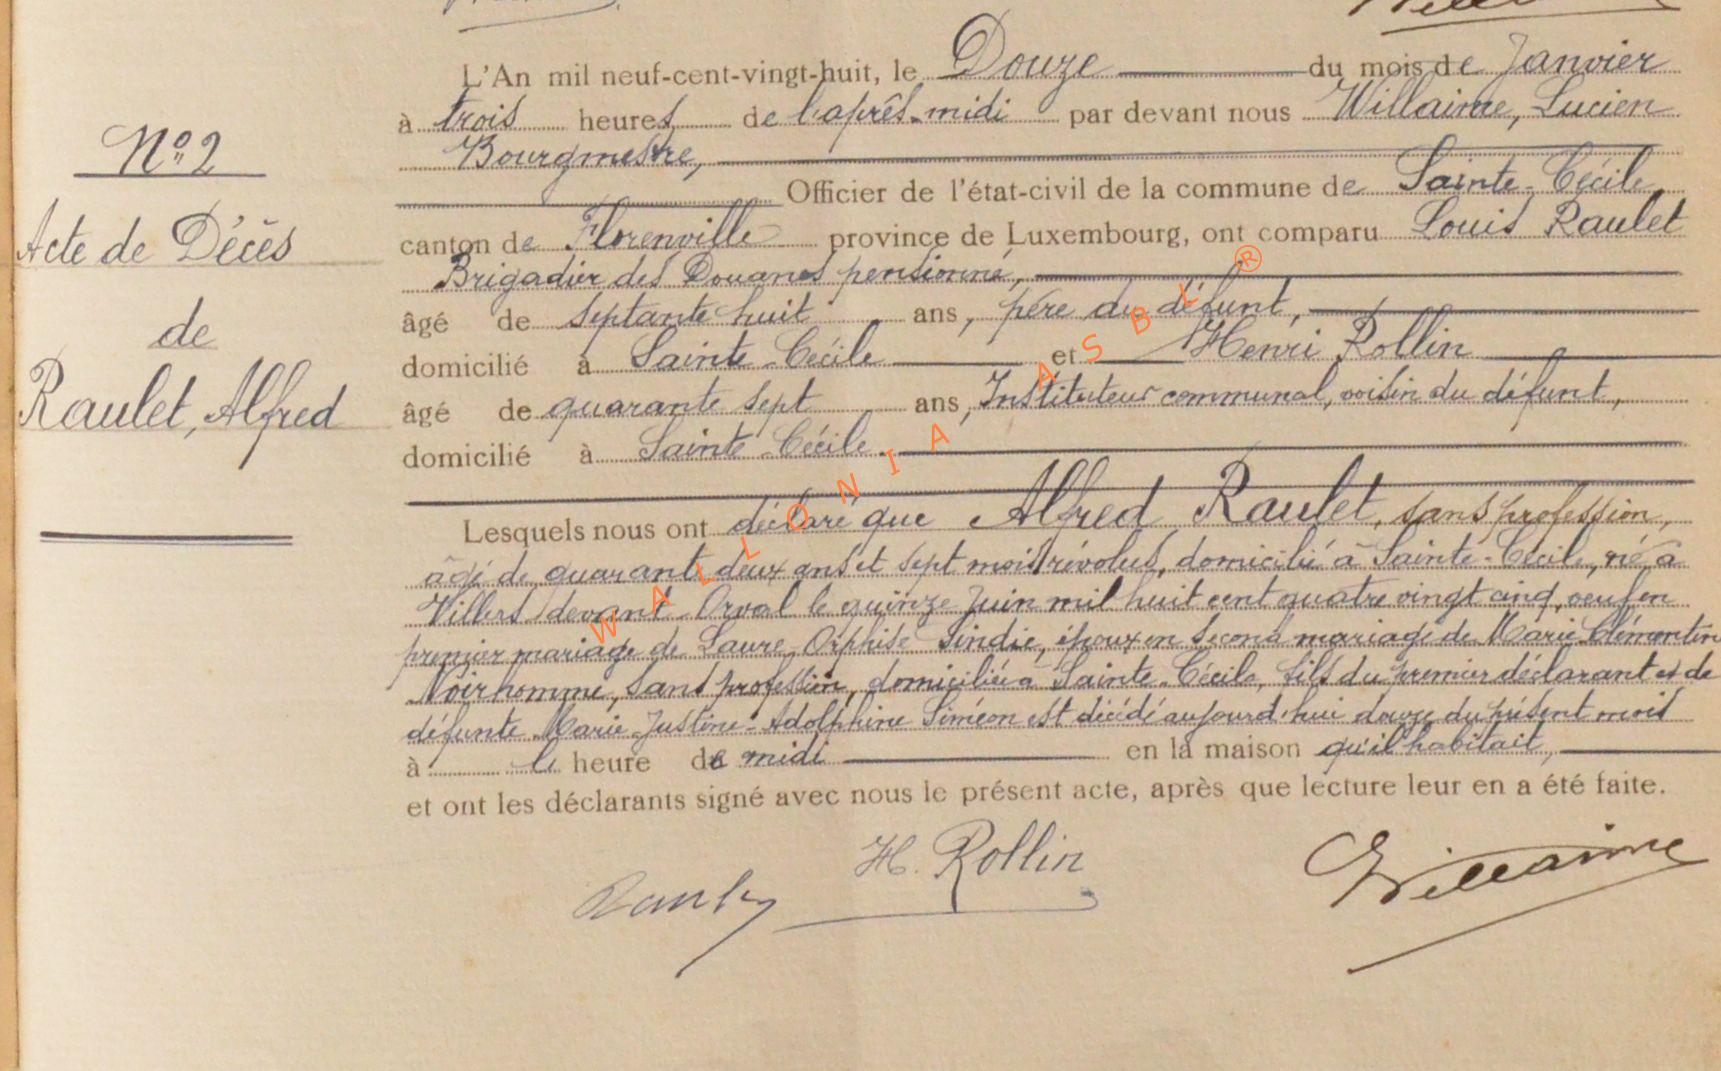 N° 2
Acte de Décès
de
Raulet, Alfred
L'An mil neuf-cent-vingt-huit, le Douze du mois de Janvier
à trois heures de l'après-midi par devant nous Willaime, Lucien
Bourgmestre,
Officier de l'état-civil de la commune de Sainte-Cécile,
canton de Florenville province de Luxembourg, ont comparu Louis Raulet
Brigadier des Douanes pensionné,
âgé de septante huit ans, père du défunt,
domicilié à Sainte-Cécile et Henri Rollin
âgé de quarante sept ans, Instituteur communal, voisin du défunt,
domicilié à Sainte-Cécile.
Lesquels nous ont déclaré que Alfred Raulet, sans profession,
âgé de quarante deux ans et sept mois révolus, domicilié à Sainte-Cécile, né à
Villers devant Orval le quinze Juin mil huit cent quatre vingt cinq, veuf en
premier mariage de Laure-Orphise Sindic, époux en second mariage de Marie Clémentine
Noirhomme, sans profession, domiciliée à Sainte-Cécile, fils du premier déclarant et de
défunte Marie-Justine-Adolphine Siméon est décédé aujourd'hui douze du présent mois
à l' heure de midi en la maison qu'il habitait,
et ont les déclarants signé avec nous le présent acte, après que lecture leur en a été faite.
H. Rollin
Raulet
Willaime
WALLONIA ASBL ®